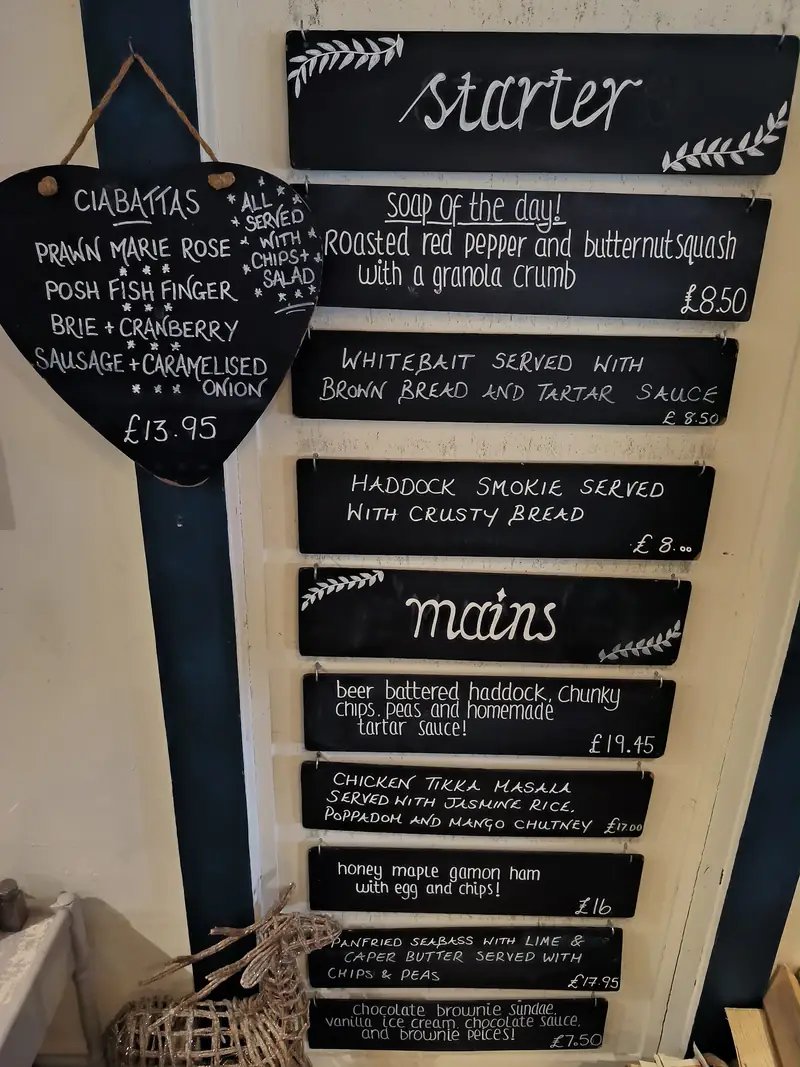 CIABATTAS
PRAWN MARIE ROSE
* * *
POSH FISH FINGER
* * *
BRIE + CRANBERRY
* * *
SAUSAGE + CARAMELISED
* * * ONION
£13.95
ALL
SERVED
WITH
CHIPS +
SALAD
starter
soap of the day!
Roasted red pepper and butternutsquash
with a granola crumb
£8.50
WHITEBAIT SERVED WITH
BROWN BREAD AND TARTAR SAUCE
£8.50
HADDOCK SMOKIE SERVED
WITH CRUSTY BREAD
£8.00
mains
beer battered haddock, chunky
chips, peas and homemade
tartar sauce!
£19.45
CHICKEN TIKKA MASALA
SERVED WITH JASMINE RICE,
POPPADOM AND MANGO CHUTNEY £17.00
honey maple gamon ham
with egg and chips!
£16
PANFRIED SEABASS WITH LIME &
CAPER BUTTER SERVED WITH
CHIPS & PEAS
£17.95
chocolate brownie sundae,
vanilla ice cream, chocolate sauce,
and brownie peices!
£7.50